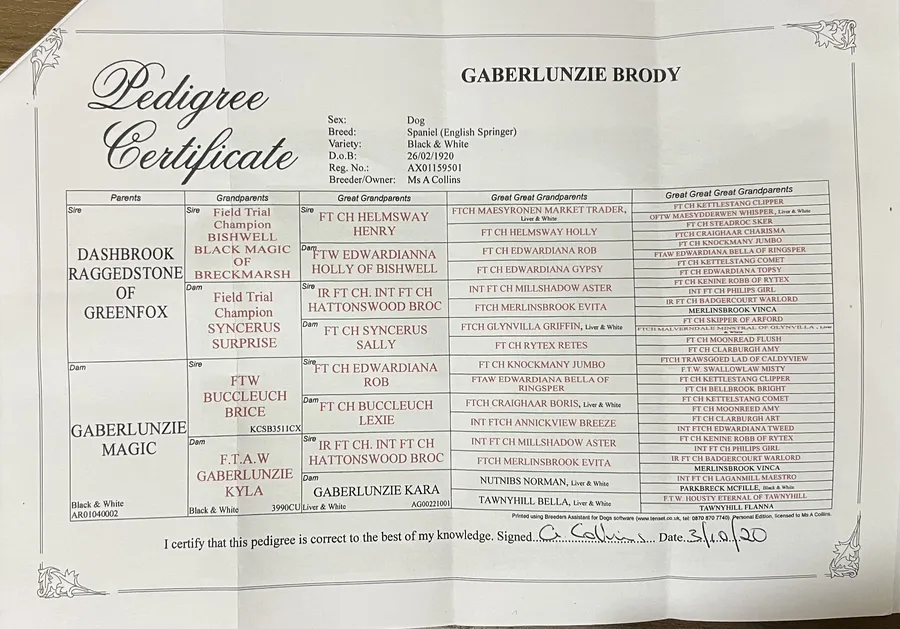 GABERLUNZIE BRODY
Pedigree
Certificate
Sex: Dog
Breed: Spaniel (English Springer)
Variety: Black & White
D.o.B: 26/02/1920
Reg. No.: AX01159501
Breeder/Owner: Ms A Collins
Parents
Grandparents
Great Grandparents
Great Great Grandparents
Great Great Great Grandparents
Sire
DASHBROOK
RAGGEDSTONE
OF
GREENFOX
Dam
GABERLUNZIE
MAGIC
Black & White
AR01040002
Sire
Field Trial
Champion
BISHWELL
BLACK MAGIC
OF
BRECKMARSH
Dam
Field Trial
Champion
SYNCERUS
SURPRISE
Sire
FTW
BUCCLEUCH
BRICE
KCSB3511CX
Dam
F.T.A.W
GABERLUNZIE
KYLA
Black & White 3990CU
Sire
FT CH HELMSWAY
HENRY
Dam
FTW EDWARDIANNA
HOLLY OF BISHWELL
Sire
IR FT CH. INT FT CH
HATTONSWOOD BROC
Dam
FT CH SYNCERUS
SALLY
Sire
FT CH EDWARDIANA
ROB
Dam
FT CH BUCCLEUCH
LEXIE
Sire
IR FT CH. INT FT CH
HATTONSWOOD BROC
Dam
GABERLUNZIE KARA
Liver & White AG00221001
FTCH MAESYRONEN MARKET TRADER,
Liver & White
FT CH HELMSWAY HOLLY
FT CH EDWARDIANA ROB
FT CH EDWARDIANA GYPSY
INT FT CH MILLSHADOW ASTER
FTCH MERLINSBROOK EVITA
FTCH GLYNVILLA GRIFFIN, Liver & White
FT CH RYTEX RETES
FT CH KNOCKMANY JUMBO
FTAW EDWARDIANA BELLA OF
RINGSPER
FTCH CRAIGHAAR BORIS, Liver & White
INT FTCH ANNICKVIEW BREEZE
INT FT CH MILLSHADOW ASTER
FTCH MERLINSBROOK EVITA
NUTNIBS NORMAN, Liver & White
TAWNYHILL BELLA, Liver & White
FT CH KETTLESTANG CLIPPER
OFTW MAESYDDERWEN WHISPER, Liver & White
FT CH STEADROC SKER
FTCH CRAIGHAAR CHARISMA
FT CH KNOCKMANY JUMBO
FTAW EDWARDIANA BELLA OF RINGSPER
FT CH KETTELSTANG COMET
FT CH EDWARDIANA TOPSY
FT CH KENINE ROBB OF RYTEX
INT FT CH PHILIPS GIRL
IR FT CH BADGERCOURT WARLORD
MERLINSBROOK VINCA
FT CH SKIPPER OF ARFORD
FTCH MALVERNDALE MINSTRAL OF GLYNVILLA , Liver
& White
FT CH MOONREAD FLUSH
FT CH CLARBURGH AMY
FTCH TRAWSGOED LAD OF CALDYVIEW
F.T.W. SWALLOWLAW MISTY
FT CH KETTLESTANG CLIPPER
FT CH BELLBROOK BRIGHT
FT CH KETTELSTANG COMET
FT CH MOONREED AMY
FT CH CLARBURGH ART
INT FT CH EDWARDIANA TWEED
FT CH KENINE ROBB OF RYTEX
INT FT CH PHILIPS GIRL
IR FT CH BADGERCOURT WARLORD
MERLINSBROOK VINCA
INT FT CH LAGANMILL MAESTRO
PARKBRECK MCFILLE, Black & White
F.T.W. HOUSTY ETERNAL OF TAWNYHILL
TAWNYHILL FLANNA
Printed using Breeders Assistant for Dogs software (www.tenset.co.uk, tel: 0870 870 7740). Personal Edition, licensed to Ms A Collins.
I certify that this pedigree is correct to the best of my knowledge. Signed... Collins... Date. 3/10/20